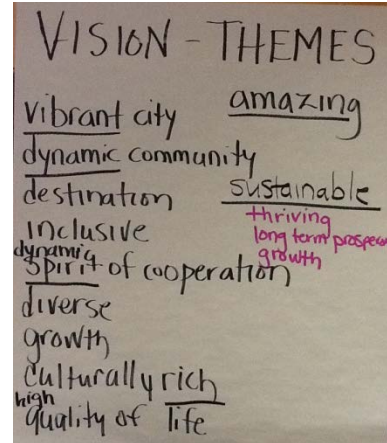 VISION - THEMES
vibrant city
dynamic community
destination
inclusive
dynamic
spirit of cooperation
diverse
growth
culturally rich
high
quality of life
amazing
sustainable
thriving
long term prosperity
growth